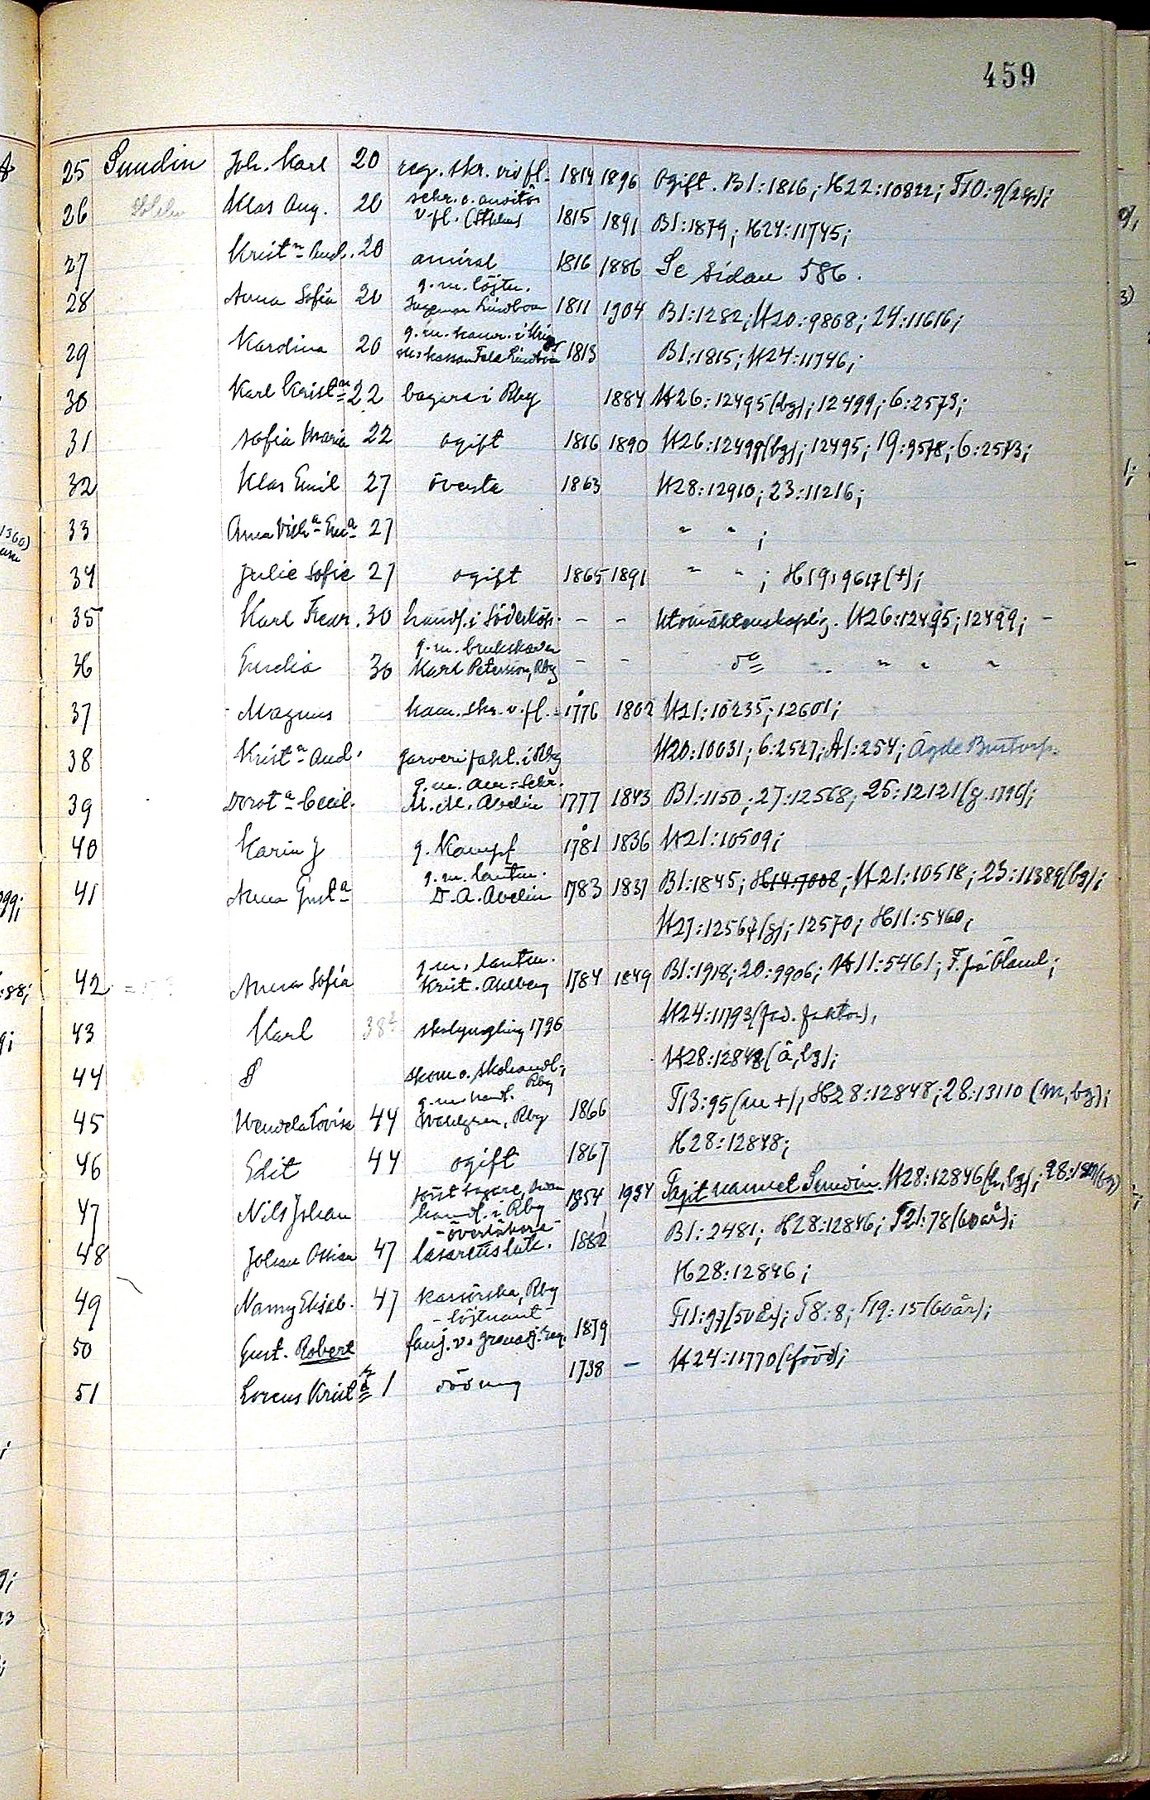 459
25 Sundin Joh. Karl 20 reg. skr. vid fl. 1814 1896 Ogift. B1:1816; H22:10822; F10:9(2g);
26 Klas Aug. 20 sekr. o. auditör v. fl. (Sthlm) 1815 1891 B1:1879; H24:11745;
27 Krist:n And. 20 amiral 1816 1886 Se sidan 586.
28 Anna Sofia 20 g.m. löjtn. Ingemar Lindbom 1811 1904 B1:1282; H20:9868; 24:11616;
29 Karolina 20 g.m. kamr. i 1813 B1:1815; H24:11746;
30 Karl Krist:n 22 bagare i Rby 1884 H26:12495(bg); 12499; 6:2573;
31 Sofia Maria 22 ogift 1816 1890 H26:12499(bg); 12495; 19:9578; 6:2573;
32 Klas Emil 27 överste 1863 H28:12910; 23:11216;
33 Anna Vilh:a Em:a 27 " " ;
34 Julie Sofie 27 ogift 1865 1891 " " ; H19:9617(+);
35 Karl Fredr. 30 handl. i Söderköp. - - Utomäktenskaplig. H26:12495; 12499; -
36 Emelia 30 g.m. Karl Petersson, Rby - - d:o " " "
37 - Magnus kam. skr. v. fl. 1776 1802 H21:10235; 12601;
38 Krist:a And. garverifabr. i Rby H20:10031; 6:2527; A1:254; Ägde Bustorp.
39 Dorot:a Cecil. g.m. am:sekr. M. M. Avelin 1777 1843 B1:1150; 27:12568; 25:12121(g.1796);
40 Karin J g. Kampf 1781 1836 H21:10509;
41 Anna Gust:a g.m. lautm. D. A. Avelin 1783 1837 B1:1845; H14:7008; H21:10518; 23:11389(bg);
H27:12567(g); 12570; H11:5460;
42 Anna Sofia g.m. lautm. Krist. Ahlberg 1784 1849 B1:1918; 20:9906; H11:5461; F. på Öland;
43 Karl 38 skolyngling 1796 H24:11793(fad. faktor),
44 skom. o. skohandl., Rby H28:12848(å,bg);
45 Wendela Lovisa 44 g.m. handl. Wendgren, Rby 1866 F13:95(m+); H28:12848; 28:13110 (m, bg);
46 Edit 44 ogift 1867 H28:12848;
47 Nils Johan handl. i Rby 1854 1934 Tagit namnet Sundin. H28:12846(h, bg);
48 Johan Ossian 47 - överläkare - lasarettsläk. 1882 B1:2481; H28:12846; F21:78(60år);
49 Nanny Elisab. 47 kassörska, Rby H28:12846;
50 Gust. Robert - löjtnant - fanj. v. grenadj. reg. 1879 F11:97(50år); F8:8; F19:15(60år);
51 Lorens Krist 1 dödung 1738 - H24:11770(född);